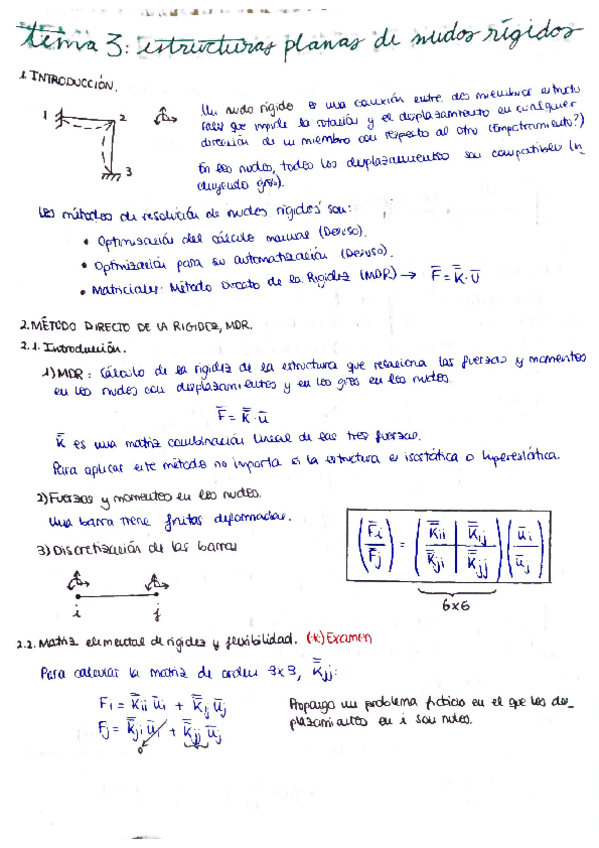 tema 3: estructuras planas de nudos rígidos
1. INTRODUCCIÓN.
1 2 3
Un nudo rígido es una conexión entre dos miembros estructu
rales que impide la rotación y el desplazamiento en cualquier
dirección de un miembro con respecto al otro (Empotramiento?)
En los nudos, todos los desplazamientos son compatibles (in
cluyendo giros).
Los métodos de resolución de nudos rígidos son:
• Optimización del cálculo manual (Desuso).
• Optimización para su automatización (Desuso).
• Matriciales: Método Directo de la Rigidez (MDR) → F̄ = K̿ · Ū
2. MÉTODO DIRECTO DE LA RIGIDEZ, MDR.
2.1. Introducción.
1) MDR: Cálculo de la rigidez de la estructura que relaciona las fuerzas y momentos
en los nudos con desplazamientos y en los giros en los nudos.
F̄ = K̿ · ū
K̿ es una matriz combinación lineal de las tres fuerzas.
Para aplicar este método no importa si la estructura es isostática o hiperestática.
2) Fuerzas y momentos en los nudos.
Una barra tiene finitas deformadas.
3) Discretización de las barras
i j
(F̄i / F̄j) = (K̿ii | K̿ij / K̿ji | K̿jj) (ūi / ūj)
6x6
2.2. Matriz elemental de rigidez y flexibilidad. (*) Examen
Para calcular la matriz de orden 3x3, K̿jj:
Fi = K̿ii ūi + K̿ij ūj
Fj = K̿ji ūi + K̿jj ūj
0
Propongo un problema ficticio en el que los des_
plazamientos en i son nulos.